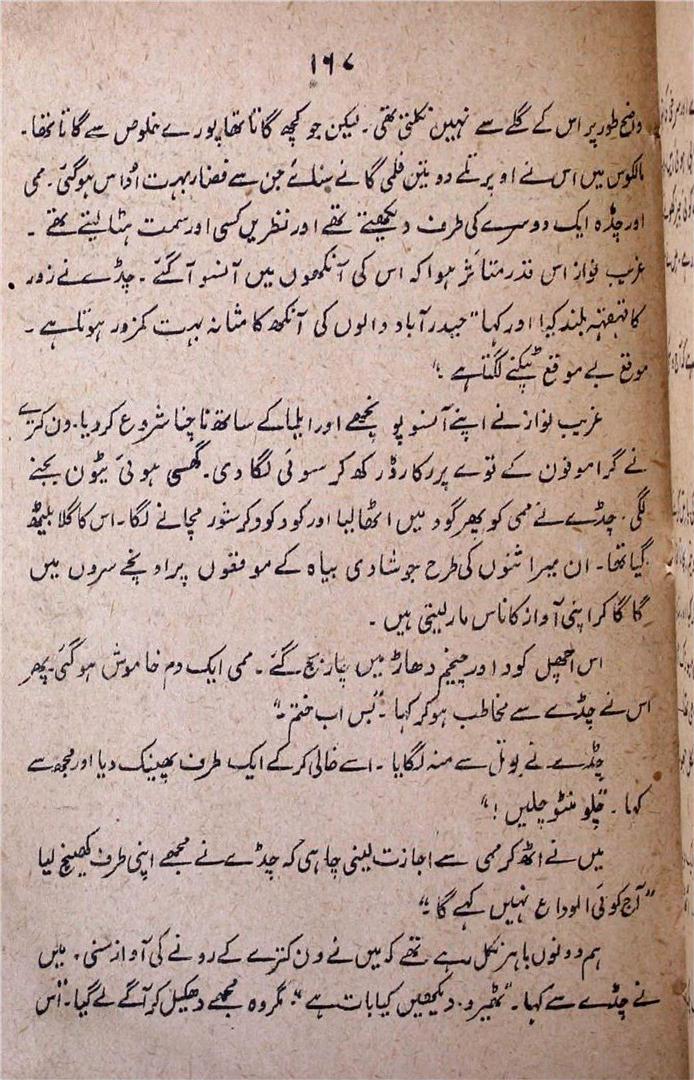 ۱۶۷
واضح طور پر اس کے گلے سے نہیں نکلتی تھی۔ لیکن جو کچھ گاتا تھا پورے خلوص سے گاتا تھا۔
مالکوس میں اس نے اوپر تلے دو تین فلمی گانے سنائے جن سے فضا بہت اُداس ہو گئی۔ ممی
اور چڈہ ایک دوسرے کی طرف دیکھتے تھے اور نظریں کسی اور سمت ہٹا لیتے تھے۔
غریب نواز اس قدر متاثر ہوا کہ اس کی آنکھوں میں آنسو آ گئے۔ چڈے نے زور
کا قہقہہ بلند کیا اور کہا "حیدر آباد والوں کی آنکھ کا مثانہ بہت کمزور ہوتا ہے۔
موقع بے موقع ٹپکنے لگتا ہے۔"
غریب نواز نے اپنے آنسو پونچھے اور ایلما کے ساتھ ناچنا شروع کر دیا۔ ون کترے
نے گراموفون کے توے پر رکارڈ رکھ کر سوئی لگا دی۔ گھسی ہوئی ٹیون بجنے
لگی۔ چڈے نے ممی کو پھر گود میں اٹھا لیا اور کود کود کر شور مچانے لگا۔ اس کا گلا بیٹھ
گیا تھا۔ ان میراثنوں کی طرح جو شادی بیاہ کے موقعوں پر اونچے سروں میں
گا گا کر اپنی آواز کا ناس مار لیتی ہیں۔
اس اچھل کود اور چیخم دھاڑ میں چار بج گئے۔ ممی ایک دم خاموش ہو گئی۔ پھر
اس نے چڈے سے مخاطب ہو کر کہا۔ "بس اب ختم۔"
چڈے نے بوتل سے منہ لگایا۔ اسے خالی کر کے ایک طرف پھینک دیا اور مجھ سے
کہا۔ "چلو منٹو چلیں!"
میں نے اٹھ کر ممی سے اجازت لینی چاہی کہ چڈے نے مجھے اپنی طرف کھینچ لیا
"آج کوئی الوداع نہیں کہے گا۔"
ہم دونوں باہر نکل رہے تھے کہ میں نے ون کترے کے رونے کی آواز سنی۔ میں
نے چڈے سے کہا۔ "ٹھیرو۔ دیکھیں کیا بات ہے"۔ مگر وہ مجھے دھکیل کر آگے لے گیا۔ "اس